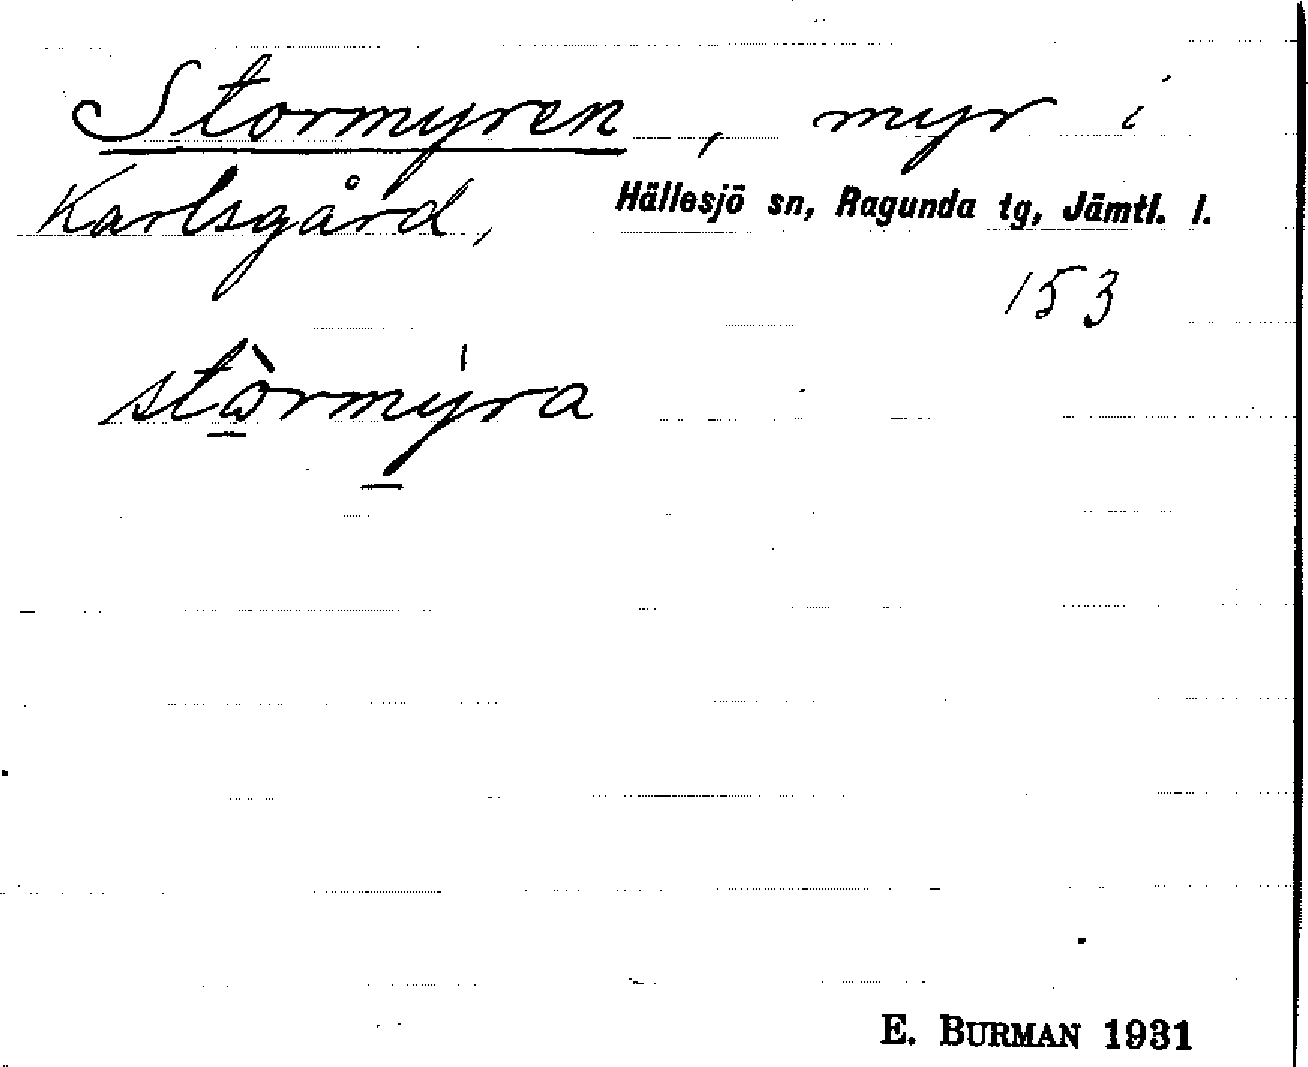 Stormyren, myr i
Karlsgård, Hällesjö sn, Ragunda tg, Jämtl. l.
153
stò̱rmý̱ra
E. BURMAN 1931